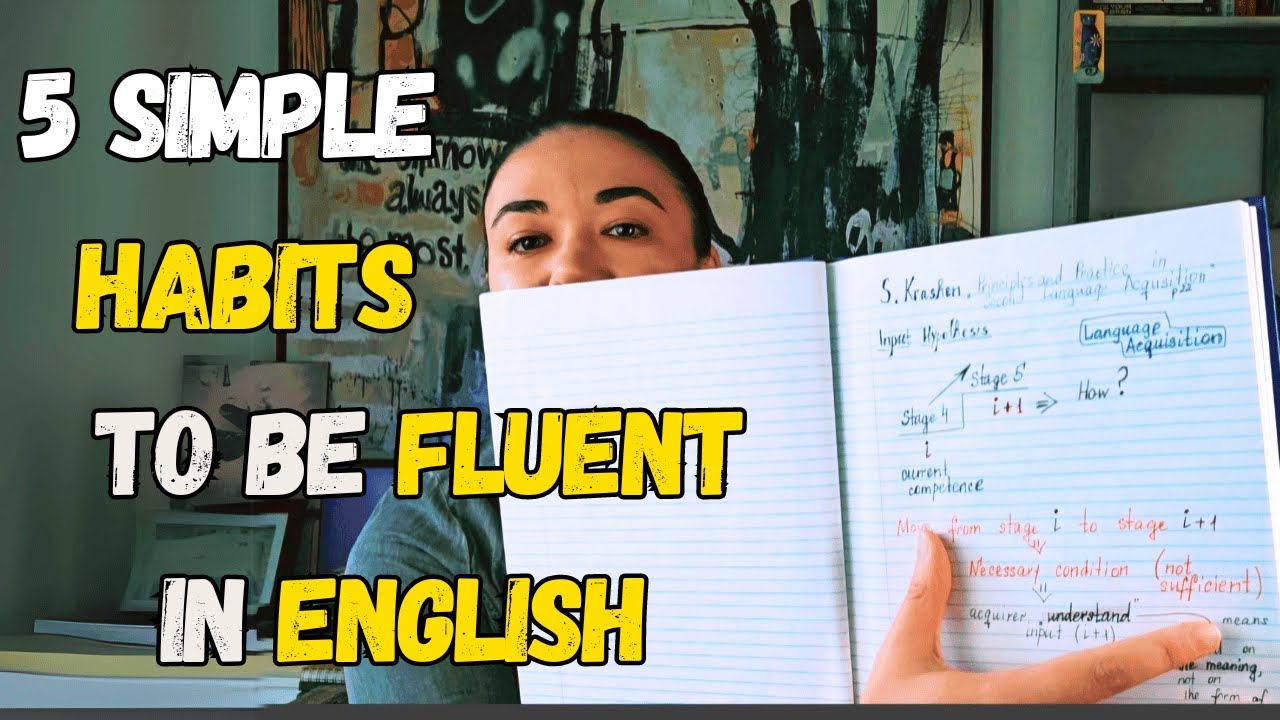 5 SIMPLE
HABITS
TO BE FLUENT
IN ENGLISH
know
always
most.
S. Krashen. Principles and Practice in
Second Language Acquisition"
Input Hypothesis
Language
Acquisition
Stage 5
Stage 4
i+1
How?
i
current
competence
from stage i to stage i+1
Necessary condition (not
sufficient)
acquirer "understand" means
input (i+1)
on
meaning,
not on
the form of